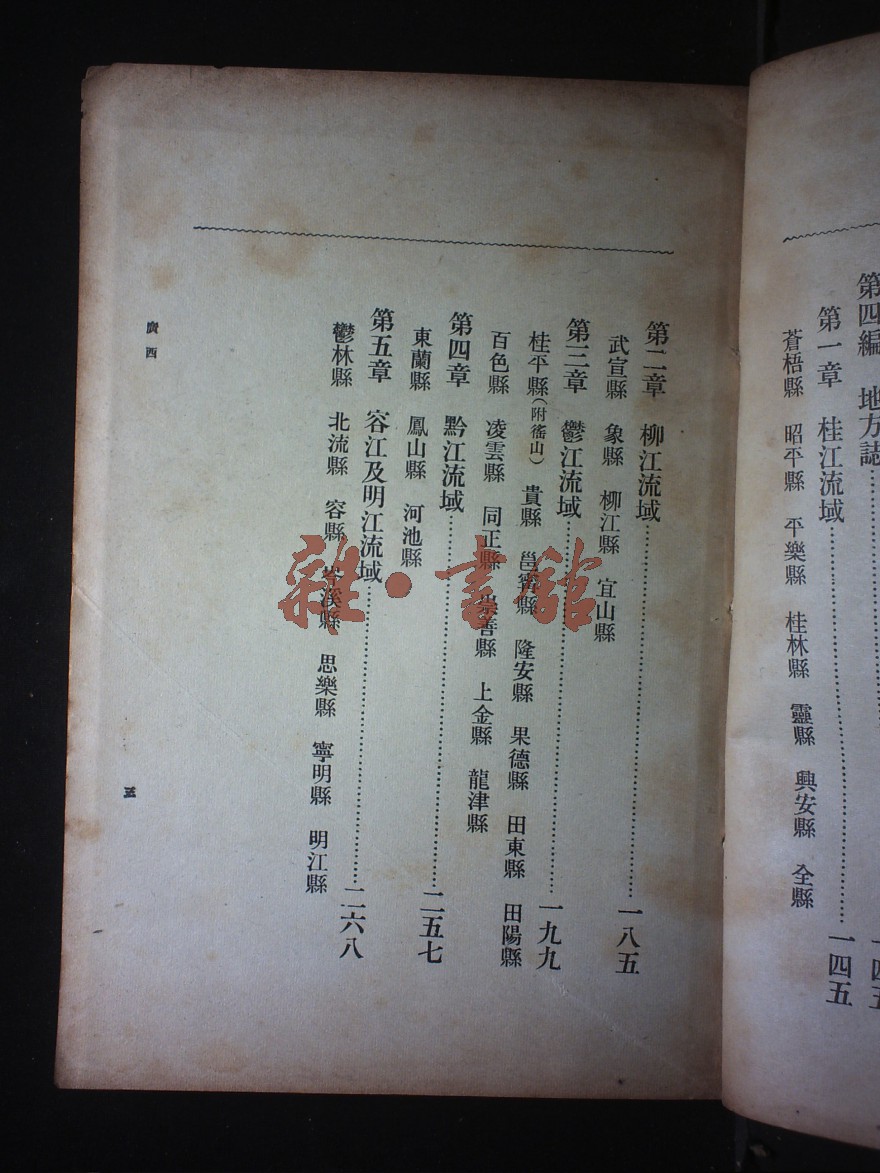 第四編 地方誌……一四五
第一章 桂江流域……一四五
蒼梧縣 昭平縣 平樂縣 桂林縣 靈縣 興安縣 全縣
第二章 柳江流域……一八五
武宣縣 象縣 柳江縣 宜山縣
第三章 鬱江流域……一九九
桂平縣(附徭山) 貴縣 邕寧縣 隆安縣 果德縣 田東縣 田陽縣
百色縣 凌雲縣 同正縣 崇善縣 上金縣 龍津縣
第四章 黔江流域……二五七
東蘭縣 鳳山縣 河池縣
第五章 容江及明江流域……二六八
鬱林縣 北流縣 容縣 岑溪縣 思樂縣 寧明縣 明江縣
廣西
五
雜·書館